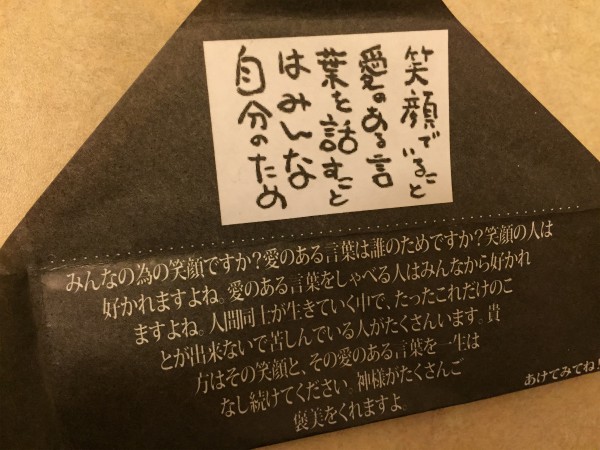 笑顔でいること
愛のある言
葉を話すこと
はみんな
自分のため
みんなの為の笑顔ですか?愛のある言葉は誰のためですか?笑顔の人は
好かれますよね。愛のある言葉をしゃべる人はみんなから好かれ
ますよね。人間同士が生きていく中で、たったこれだけのこ
とが出来ないで苦しんでいる人がたくさんいます。貴
方はその笑顔と、その愛のある言葉を一生は
なし続けてください。神様がたくさんご
褒美をくれますよ。
あけてみてね!